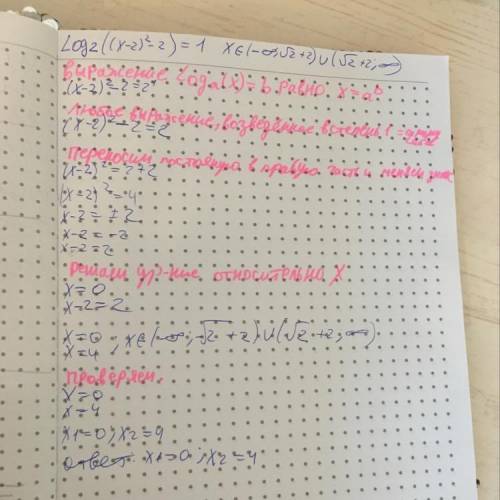 Log2((x-2)²-2)=1 x∈(-∞,√2+2)∪(√2+2,∞)
Выражение Loga(x)=b равно x=a^b
(x-2)²-2=2¹
Любое выражение, возведённое в степень 1 =
(x-2)²-2=2
Переносим постоянную в правую часть и меняем знак
(x-2)²=2+2
(x-2)²=4
x-2=±2
x-2=-2
x-2=2
Решаем ур-ние относительно X
x=0
x-2=2
x=0
x=4, x∈(-∞;-√2+2)∪(√2+2,∞)
Проверяем.
x=0
x=4
x1=0; x2=4
ответ. x1=0; x2=4